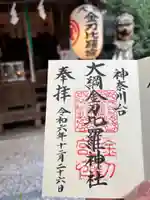 金刀比羅宮
神奈川台
大綱金刀比羅神社
奉拝
令和六年十二月二十六日